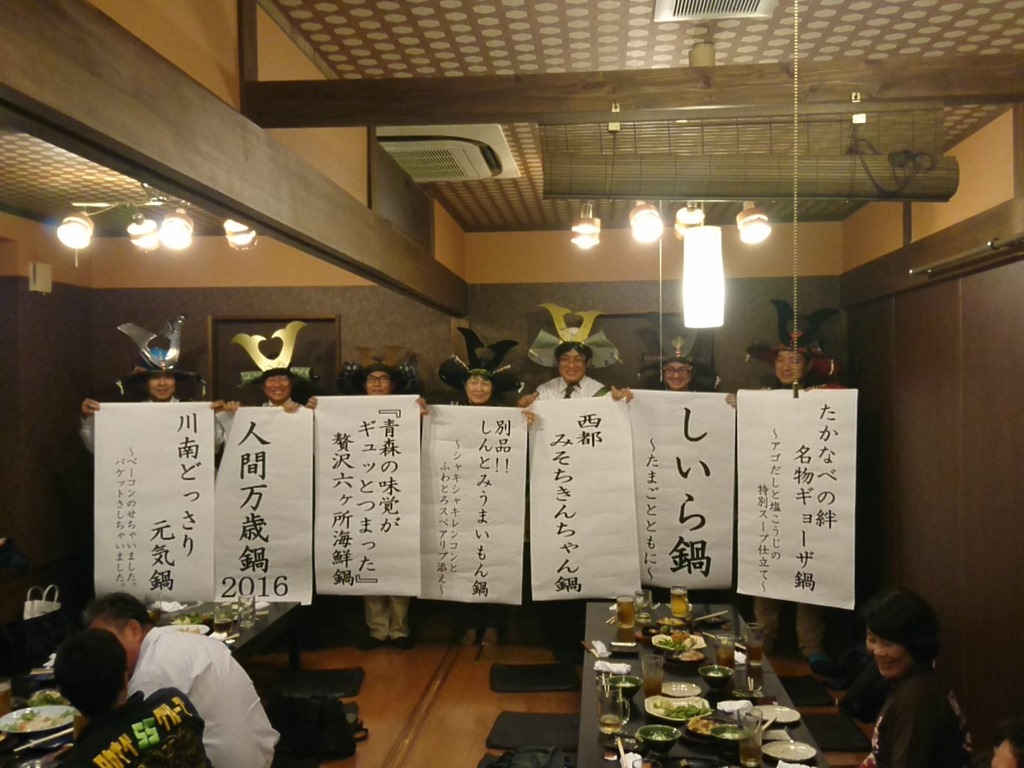 たかなべの絆
名物ギョーザ鍋
～アゴだしと塩こうじの
特別スープ仕立て～
しいら鍋
～たまごとともに～
西都
みそちきんちゃん鍋
別品!!
しんとみうまいもん鍋
～シャキシャキレンコンと
ふわとろスペアリブ添え～
『青森の味覚が
ギュッとつまった』
贅沢六ヶ所海鮮鍋
人間万歳鍋
2016
川南どっさり
元気鍋
～ベーコンのせちゃいました。
バケットさしちゃいました。